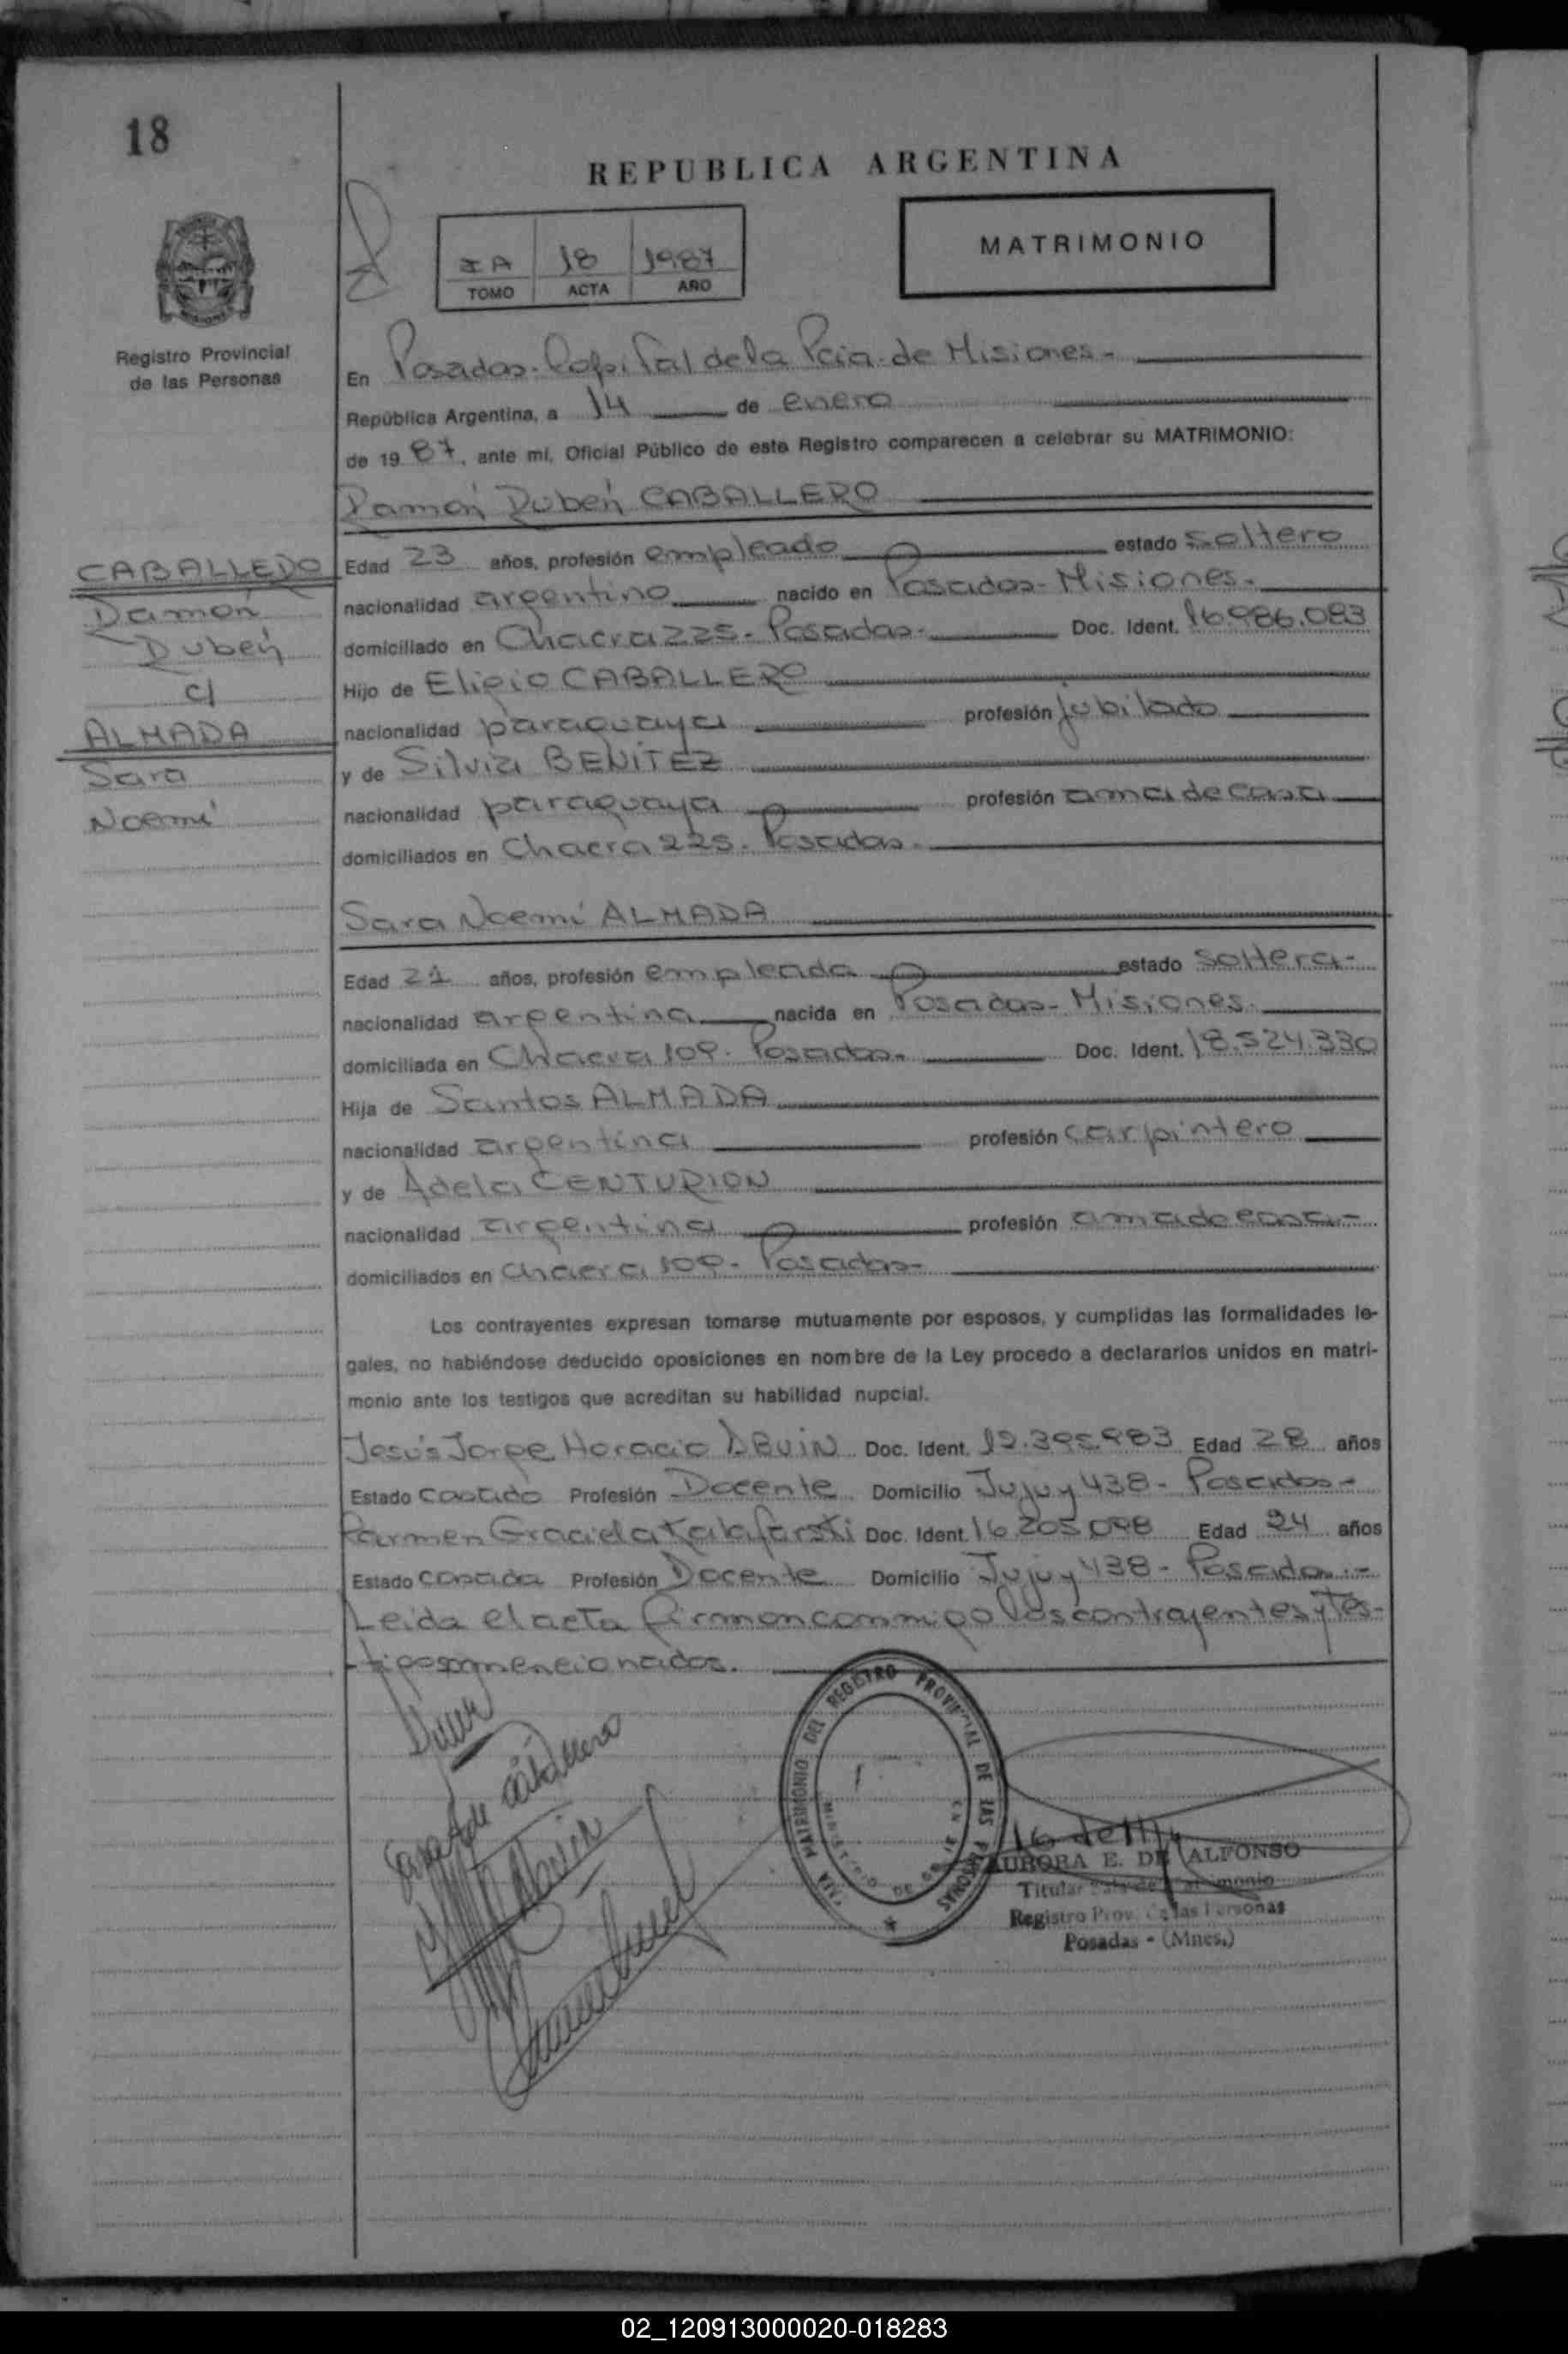 18
REPUBLICA ARGENTINA
MATRIMONIO
IA 18 1987
TOMO ACTA AÑO
Registro Provincial
de las Personas
En Posadas. Capital de la Pcia. de Misiones.-
República Argentina, a 14 de enero
de 19 87, ante mí, Oficial Público de este Registro comparecen a celebrar su MATRIMONIO:
Ramón Rubén CABALLERO
CABALLERO
Ramón
Rubén
c/
ALMADA
Sara
Noemí
Edad 23 años, profesión empleado estado soltero
nacionalidad argentino nacido en Posadas- Misiones.
domiciliado en Chacra 225- Posadas- Doc. Ident. 16.986.083
Hijo de Eligio CABALLERO
nacionalidad paraguaya profesión jubilado
y de Silvia BENITEZ
nacionalidad paraguaya profesión ama de casa
domiciliados en Chacra 225. Posadas.
Sara Noemí ALMADA
Edad 21 años, profesión empleada estado soltera-
nacionalidad argentina nacida en Posadas- Misiones.
domiciliada en Chacra 109- Posadas- Doc. Ident. 18.524.330
Hija de Santos ALMADA
nacionalidad argentina profesión carpintero
y de Adela CENTURION
nacionalidad argentina profesión ama de casa-
domiciliados en Chacra 109- Posadas-
Los contrayentes expresan tomarse mutuamente por esposos, y cumplidas las formalidades le-
gales, no habiéndose deducido oposiciones en nombre de la Ley procedo a declararlos unidos en matri-
monio ante los testigos que acreditan su habilidad nupcial.
Jesús Jorge Horacio Doc. Ident. Edad 28 años
Estado casado Profesión Docente Domicilio Jujuy 438- Posadas-
Carmen Graciela Doc. Ident. 16.205.098 Edad 24 años
Estado casada Profesión Docente Domicilio Jujuy 438- Posadas.-
Leida el acta firman conmigo los contrayentes y tes-
tigos mencionados.
MATRIMONIO DEL REGISTRO PROVINCIAL DE LAS PERSONAS
Caballero
AURORA E. DE ALFONSO
Titular Sala de Matrimonio
Registro Prov. de las Personas
Posadas - (Mnes.)
02_120913000020-018283